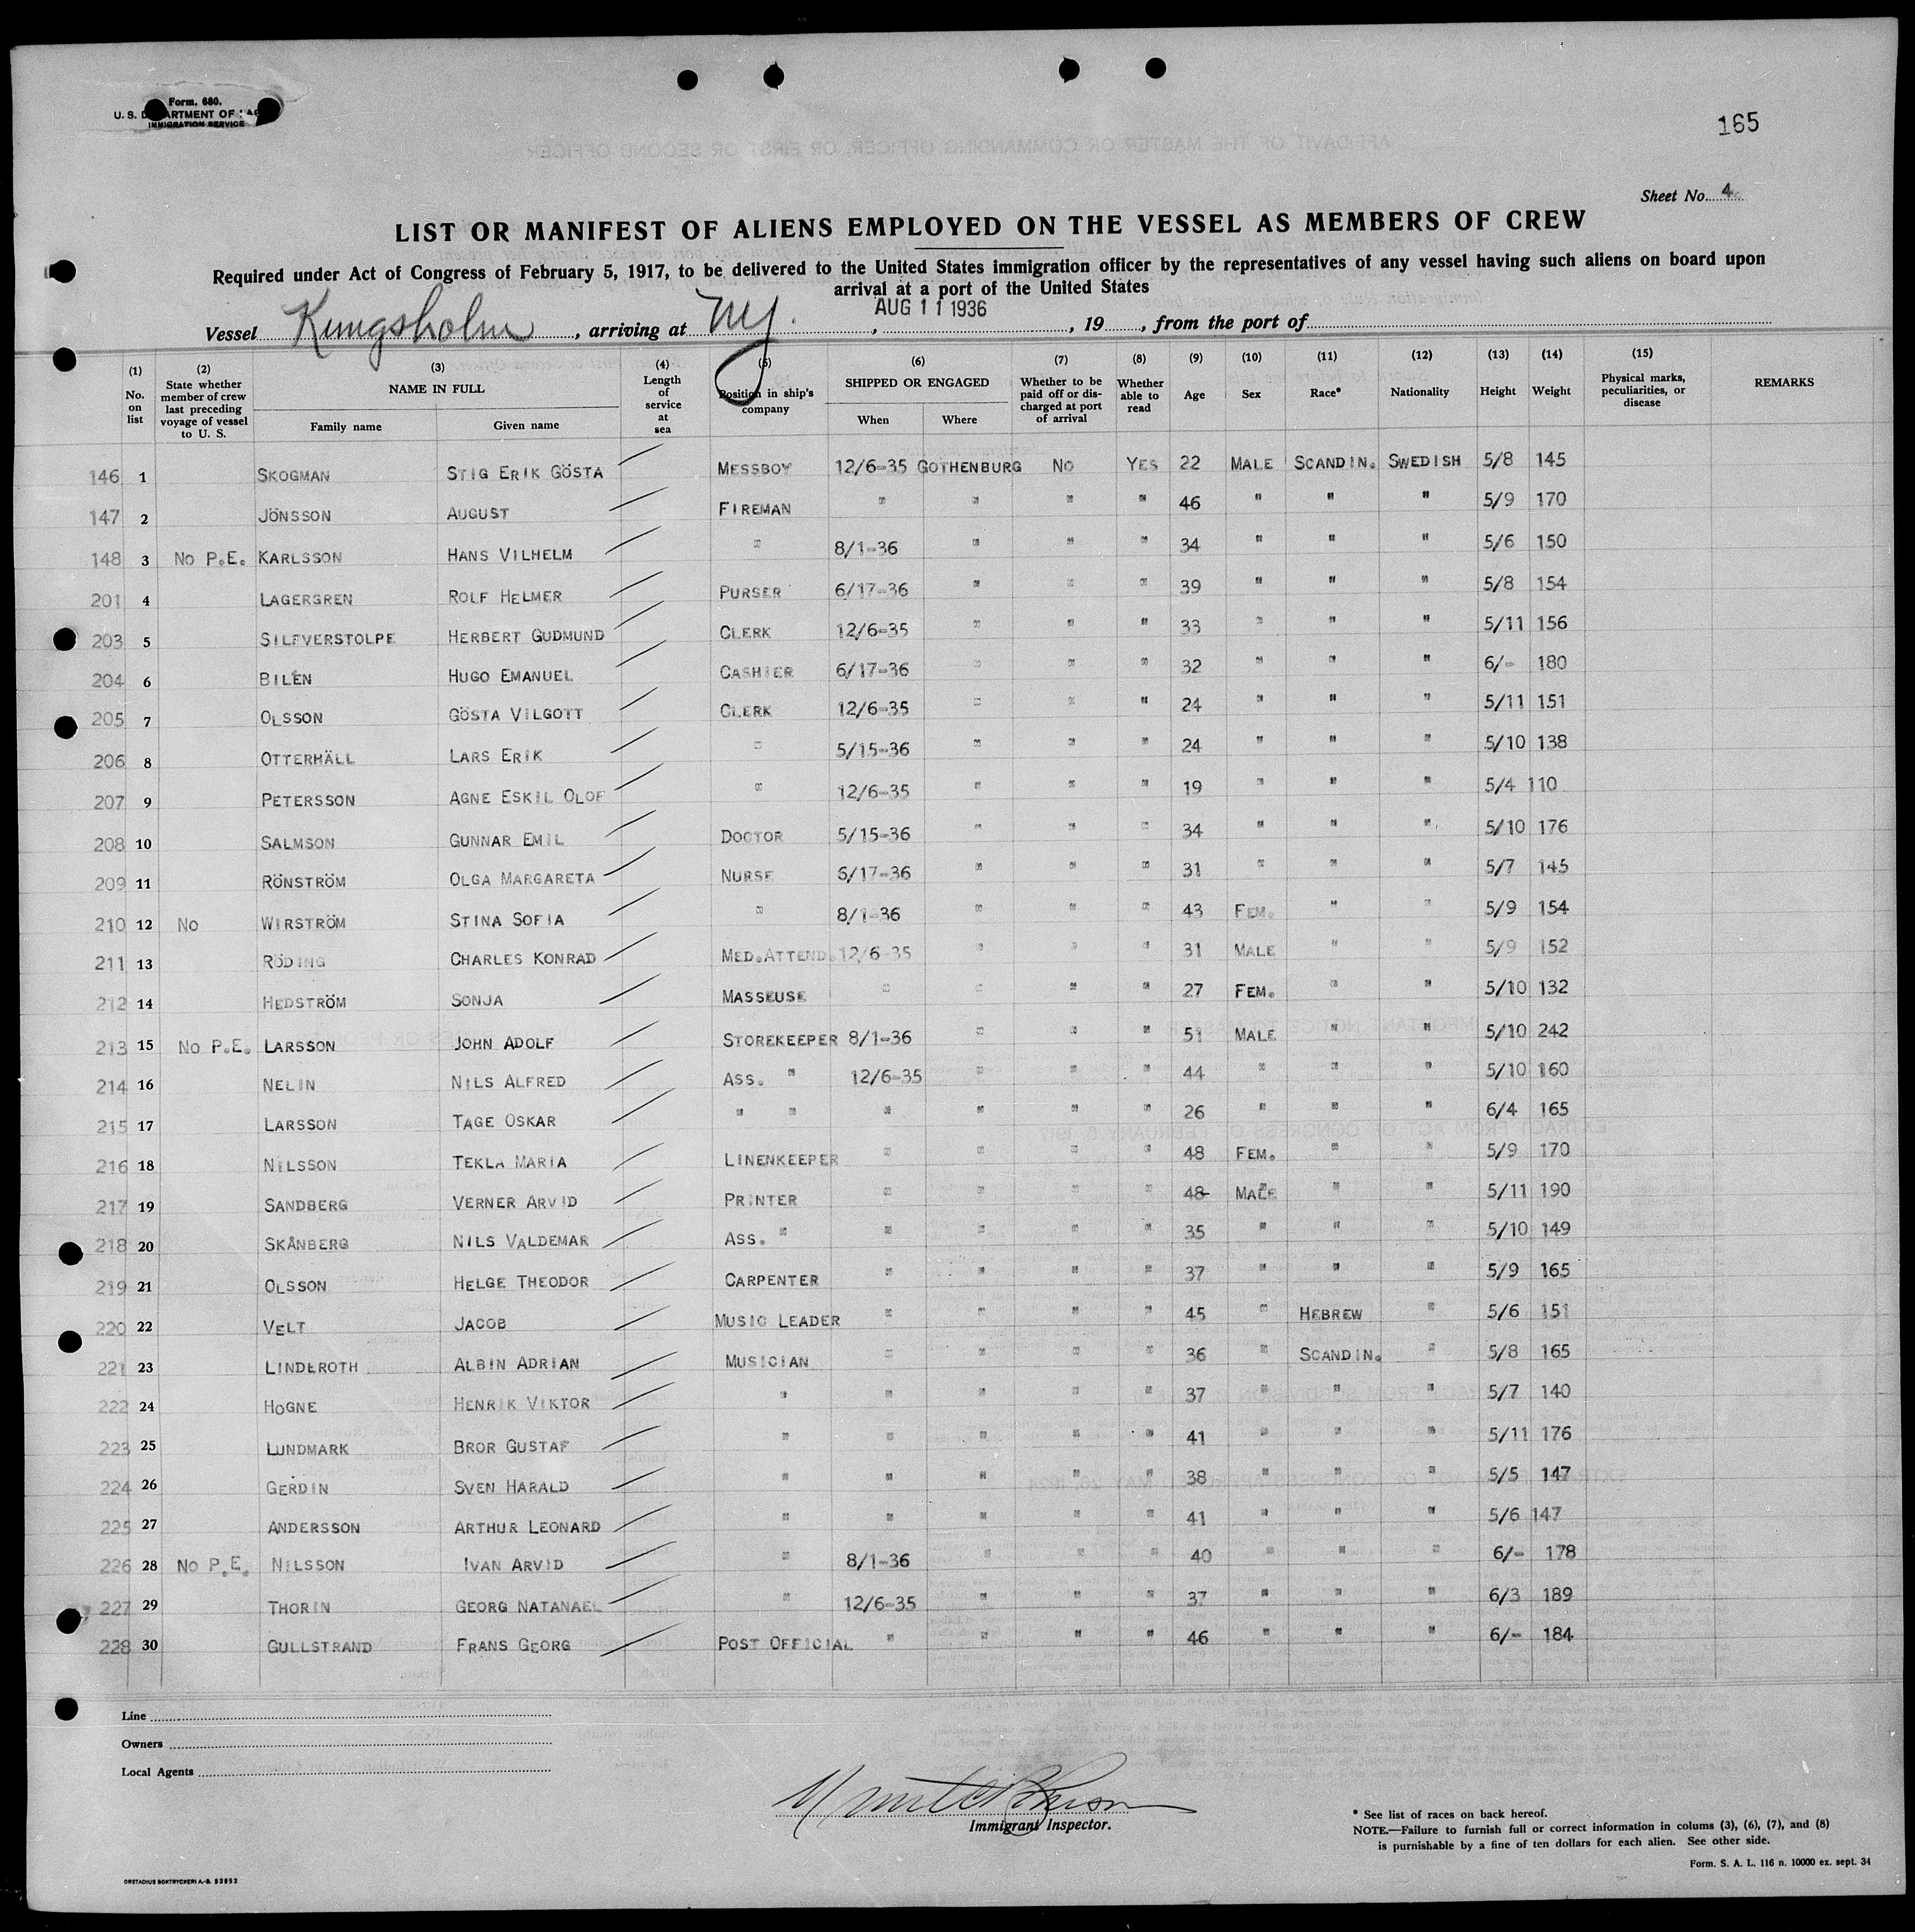 Form. 680.
U. S. DEPARTMENT OF
IMMIGRATION SERVICE
165
Sheet No. 4
LIST OR MANIFEST OF ALIENS EMPLOYED ON THE VESSEL AS MEMBERS OF CREW
Required under Act of Congress of February 5, 1917, to be delivered to the United States immigration officer by the representatives of any vessel having such aliens on board upon
arrival at a port of the United States
Vessel Kungsholm, arriving at NY. AUG 11 1936, 19, from the port of
(1) No. on list (2) State whether member of crew last preceding voyage of vessel to U. S. (3) NAME IN FULL Family name Given name (4) Length of service at sea (5) Position in ship's company (6) SHIPPED OR ENGAGED When Where (7) Whether to be paid off or discharged at port of arrival (8) Whether able to read (9) Age (10) Sex (11) Race* (12) Nationality (13) Height (14) Weight (15) Physical marks, peculiarities, or disease REMARKS
146 1 SKOGMAN STIG ERIK GÖSTA MESSBOY 12/6-35 GOTHENBURG NO YES 22 MALE SCANDIN. SWEDISH 5/8 145
147 2 JÖNSSON AUGUST FIREMAN " " " " 46 " " " 5/9 170
148 3 NO P.E. KARLSSON HANS VILHELM " 8/1-36 " " " 34 " " " 5/6 150
201 4 LAGERGREN ROLF HELMER PURSER 6/17-36 " " " 39 " " " 5/8 154
203 5 SILFVERSTOLPE HERBERT GUDMUND CLERK 12/6-35 " " " 33 " " " 5/11 156
204 6 BILÉN HUGO EMANUEL CASHIER 6/17-36 " " " 32 " " " 6/- 180
205 7 OLSSON GÖSTA VILGOTT CLERK 12/6-35 " " " 24 " " " 5/11 151
206 8 OTTERHÄLL LARS ERIK " 5/15-36 " " " 24 " " " 5/10 138
207 9 PETERSSON AGNE ESKIL OLOF " 12/6-35 " " " 19 " " " 5/4 110
208 10 SALMSON GUNNAR EMIL DOCTOR 5/15-36 " " " 34 " " " 5/10 176
209 11 RÖNSTRÖM OLGA MARGARETA NURSE 6/17-36 " " " 31 " " " 5/7 145
210 12 NO WIRSTRÖM STINA SOFIA " 8/1-36 " " " 43 FEM. " " 5/9 154
211 13 RÖDING CHARLES KONRAD MED.ATTEND. 12/6-35 " " " 31 MALE " " 5/9 152
212 14 HEDSTRÖM SONJA MASSEUSE " " " " 27 FEM. " " 5/10 132
213 15 NO P.E. LARSSON JOHN ADOLF STOREKEEPER 8/1-36 " " " 51 MALE " " 5/10 242
214 16 NELIN NILS ALFRED ASS. " 12/6-35 " " " 44 " " " 5/10 160
215 17 LARSSON TAGE OSKAR " " " " " " 26 " " " 6/4 165
216 18 NILSSON TEKLA MARIA LINENKEEPER " " " " 48 FEM. " " 5/9 170
217 19 SANDBERG VERNER ARVID PRINTER " " " " 48 MALE " " 5/11 190
218 20 SKÅNBERG NILS VALDEMAR ASS. " " " " " 35 " " " 5/10 149
219 21 OLSSON HELGE THEODOR CARPENTER " " " " 37 " " " 5/9 165
220 22 VELT JACOB MUSIC LEADER " " " " 45 " HEBREW " 5/6 151
221 23 LINDEROTH ALBIN ADRIAN MUSICIAN " " " " 36 " SCANDIN. " 5/8 165
222 24 HOGNE HENRIK VIKTOR " " " " " 37 " " " 5/7 140
223 25 LUNDMARK BROR GUSTAF " " " " " 41 " " " 5/11 176
224 26 GERDIN SVEN HARALD " " " " " 38 " " " 5/5 147
225 27 ANDERSSON ARTHUR LEONARD " " " " " 41 " " " 5/6 147
226 28 NO P.E. NILSSON IVAN ARVID " 8/1-36 " " " 40 " " " 6/- 178
227 29 THORIN GEORG NATANAEL " 12/6-35 " " " 37 " " " 6/3 189
228 30 GULLSTRAND FRANS GEORG POST OFFICIAL " " " " 46 " " " 6/- 184
Line
Owners
Local Agents
Immigrant Inspector.
* See list of races on back hereof.
NOTE.—Failure to furnish full or correct information in colums (3), (6), (7), and (8)
is purnishable by a fine of ten dollars for each alien. See other side.
Form. S. A. L. 116 n. 10000 ex. sept. 34
ORSTADIUS BOKTRYCKERI A.-B. 52852